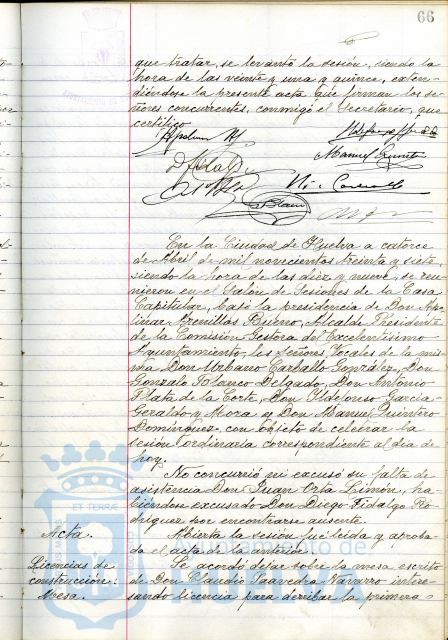 66
que tratar, se levantó la sesión, siendo la
hora de las veinte y una y quince, exten-
diéndose la presente acta que firman los se-
ñores concurrentes, conmigo el Secretario, que
certifico
Manuel Quintero
En la Ciudad de Huelva a catorce
de Abril de mil novecientos treinta y siete
siendo la hora de las diez y nueve, se reu-
nieron en el Salón de Sesiones de la Casa
Capitular, bajo la presidencia de Don Apo-
linar Arenillas Bueno, Alcalde Presidente
de la Comisión Gestora del Excelentísimo
Ayuntamiento, los señores Vocales de la mis-
ma Don Urbano Carballo González, Don
Gonzalo Blanco Delgado, Don Antonio
Plata de la Corte, Don Ildefonso García-
Geraldo y Mora y Don Manuel Quintero
Domínguez, con objeto de celebrar la
sesión ordinaria correspondiente al día de
hoy.
No concurrió ni excusó su falta de
asistencia Don Juan Orta Limón, ha-
biéndose excusado Don Diego Fidalgo Ro-
dríguez por encontrarse ausente.
Acta. Abierta la sesión fué leida y aproba-
da el acta de la anterior.
Licencias de Se acordó dejar sobre la mesa escrito
construcción: de Don Claudio Saavedra Navarro intere-
Mesa. sando licencia para derribar la primera
ET TERRÆ
Ayuntamiento de
HUELVA